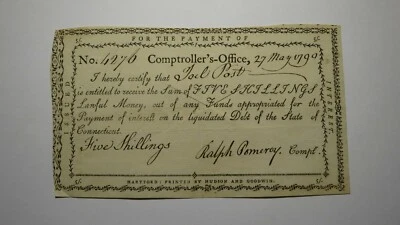 FOR THE PAYMENT OF
No. 4276 Comptroller's-Office, 27 May 1790
I hereby certify that Joel Post
is entitled to receive the Sum of FIVE SHILLINGS
Lawful Money, out of any Funds appropriated for the
Payment of interest on the liquidated Debt of the State of
Connecticut.
Five Shillings Ralph Pomeroy, Compt.
HARTFORD: PRINTED BY HUDSON AND GOODWIN.
ISSUED
INTEREST.
5/.
5/.
5/.
5/.